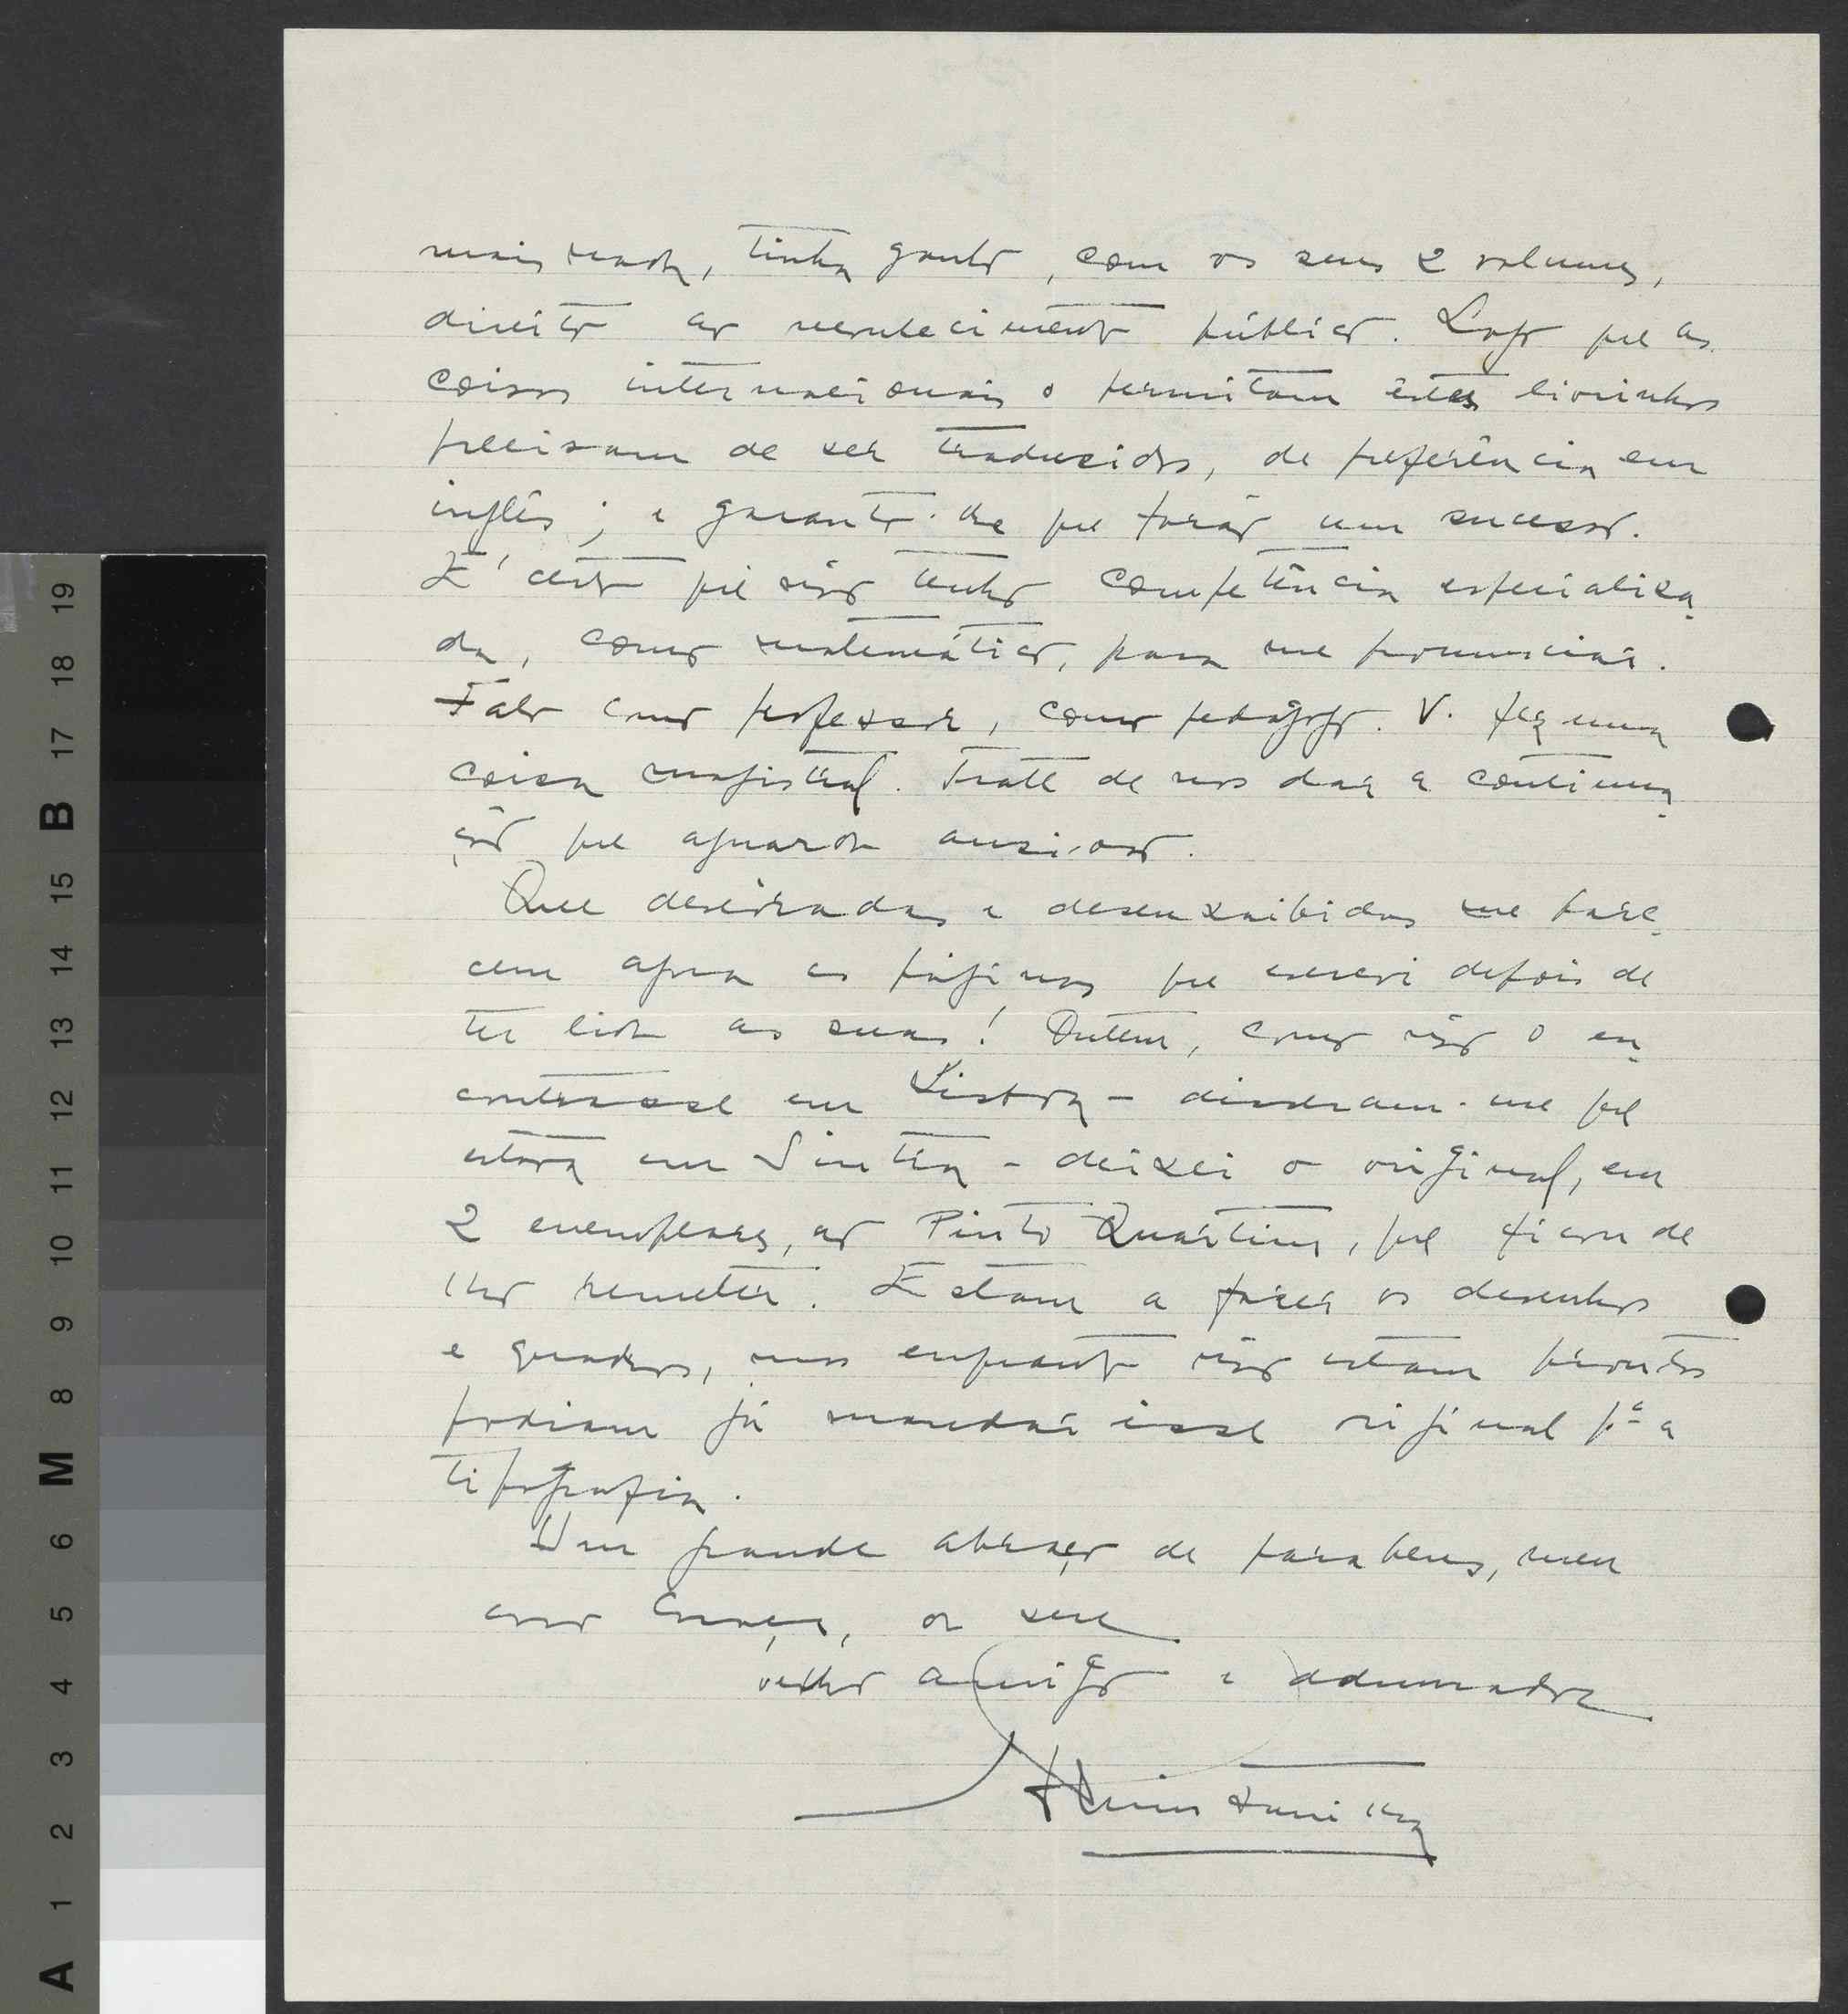 mais nada, tinha ganho, com os seus 2 volumes,
direito ao reconhecimento público. Logo que as
coisas internacionais o permitam êstes livrinhos
precisam de ser traduzidos, de preferência em
inglês; e garanto-lhe que farão um sucesso.
É certo que não tenho competência especializa-
da, como matemático, para me pronunciar.
Falo como professor, como pedagogo. V. fez uma
coisa magistral. Trate de nos dar a continua-
ção que aguardo ansioso.
Que deseixadas e desenxaibidas me pare-
cem agora as páginas que escrevi depois de
ter lido as suas! Ontem, como não o en-
contrasse em Lisboa - disseram-me que
estava em Sintra - deixei o original, em
2 exemplares, ao Pinto Quartim, que ficou de
lho remeter. Estam a fazer os desenhos
e quadros, mas enquanto não estam prontos
podiam já mandar êsse original pª a
tipografia.
Um grande abraço de parabens, meu
caro Caraça, do seu
velho amigo e admirador